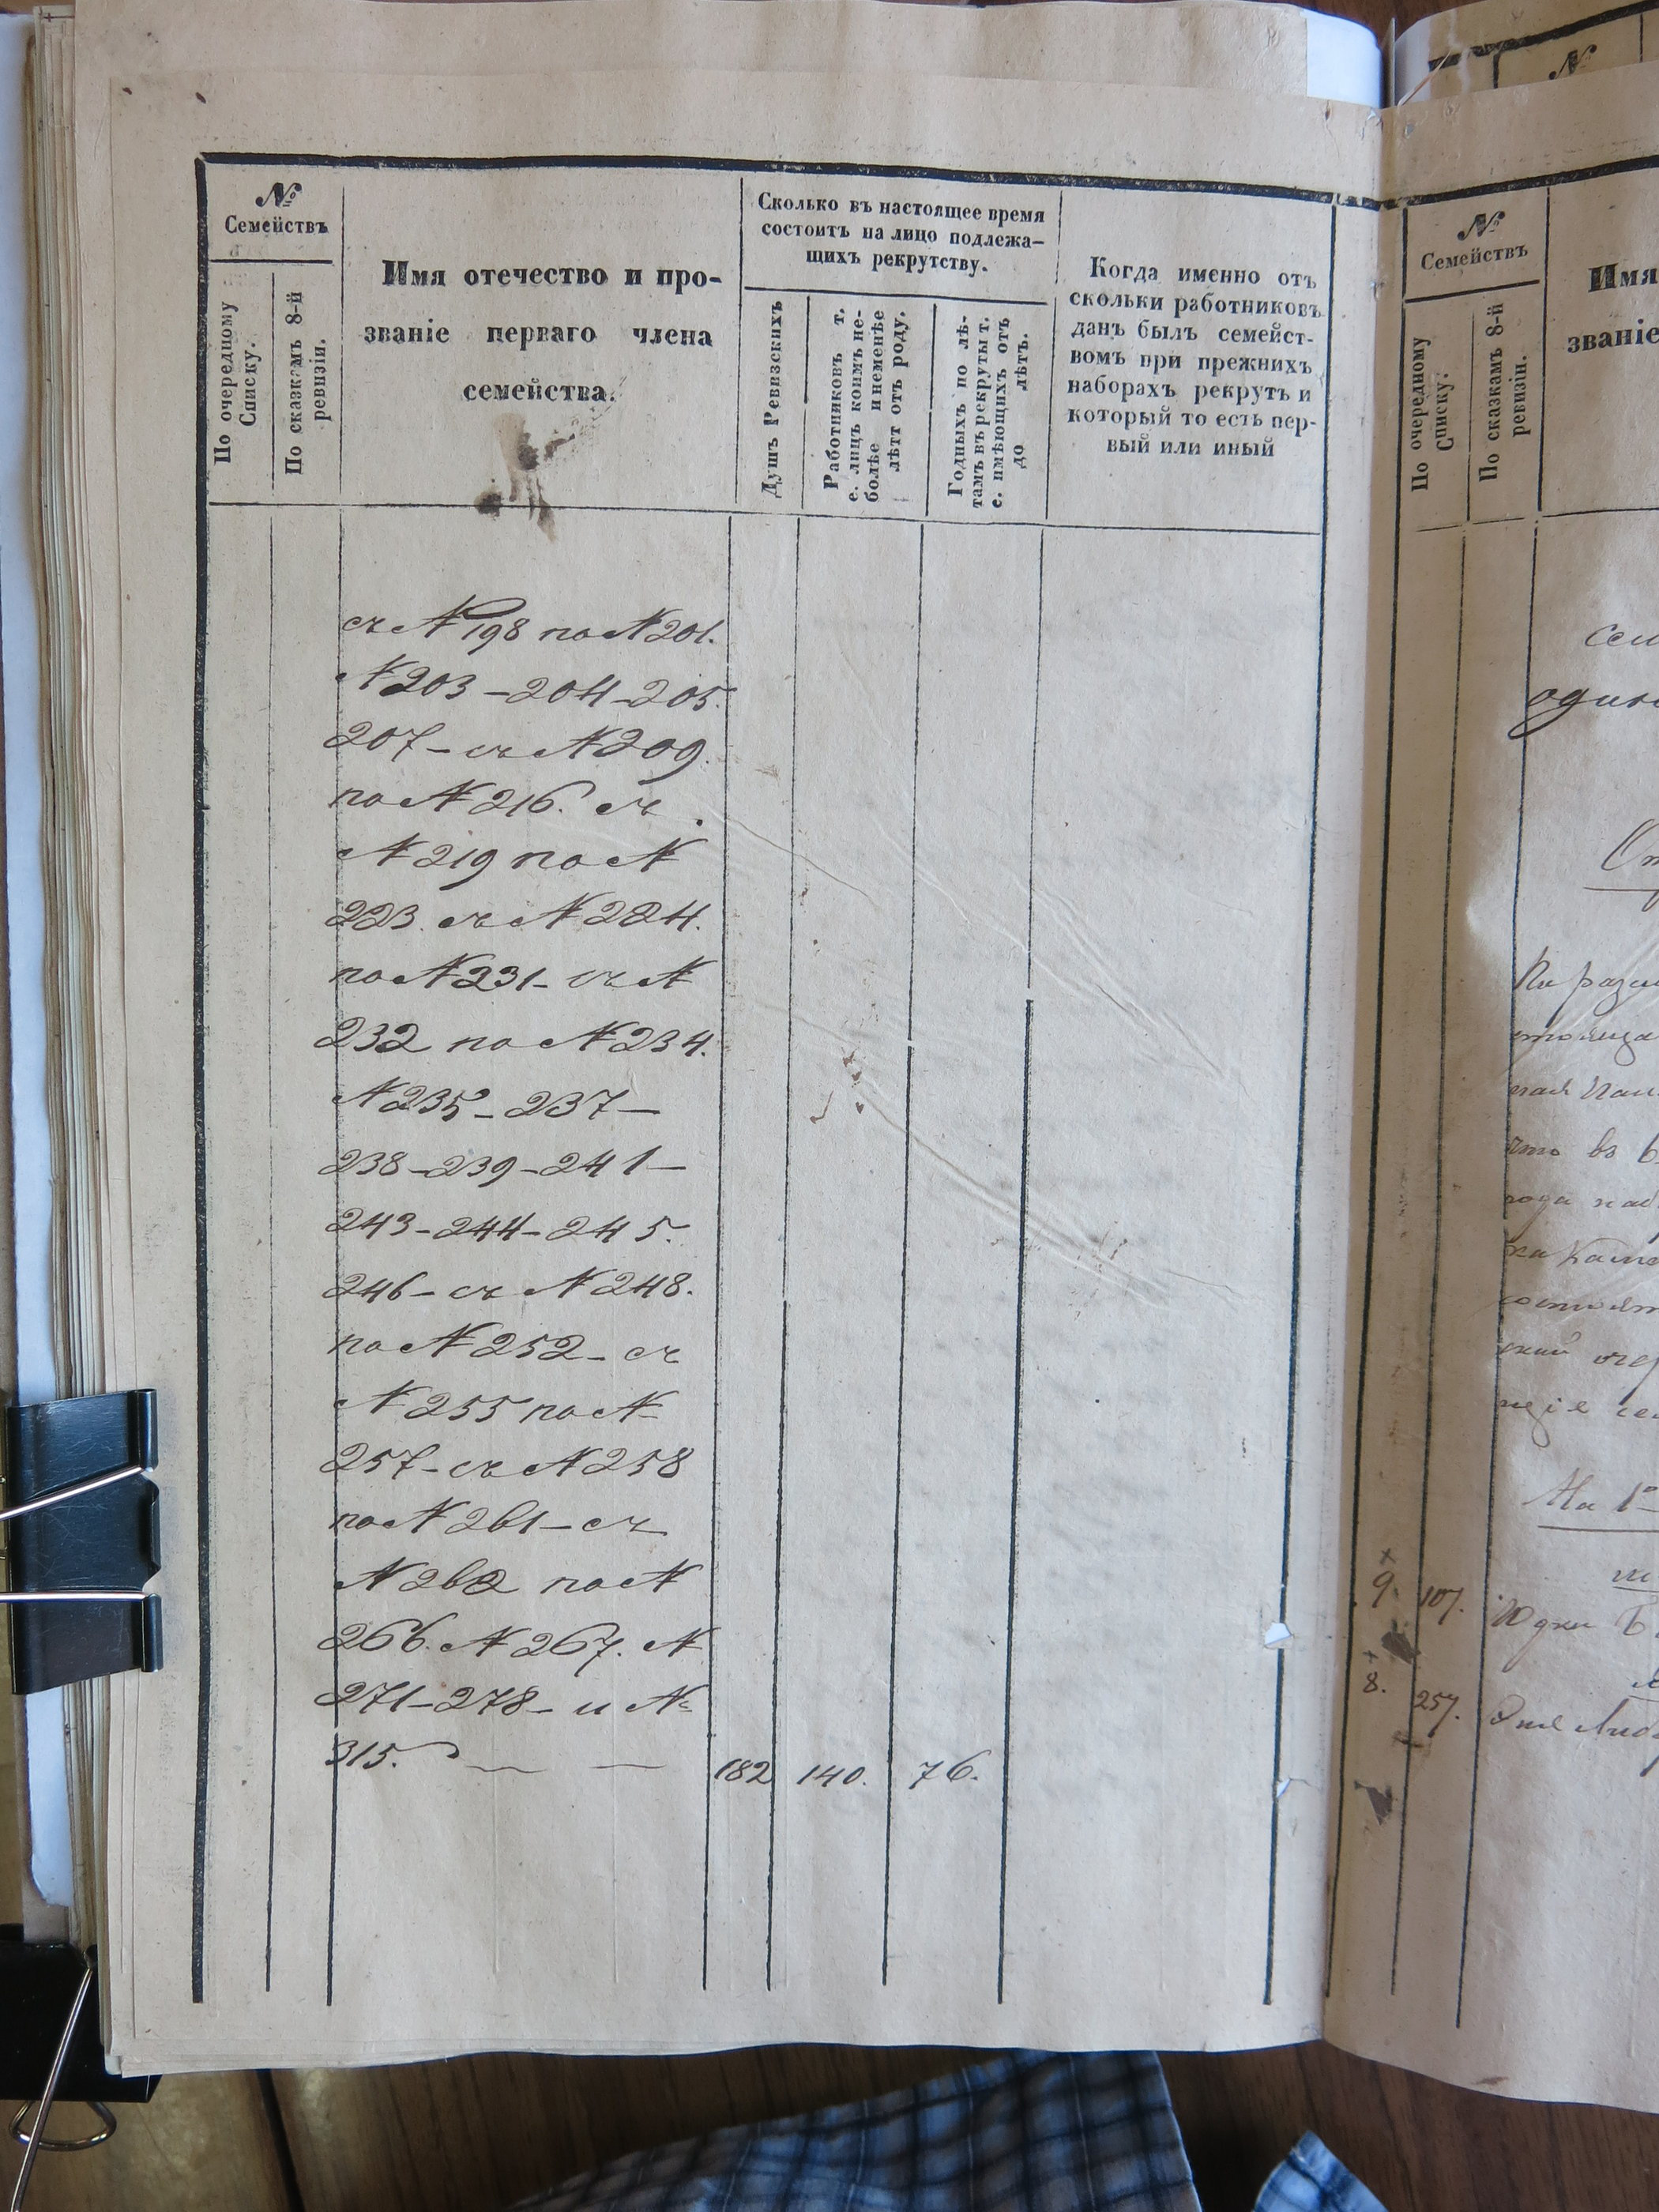 №
Семействъ
По очередному
Списку.
По сказкамъ 8-й
ревизіи.
Имя отечество и про-
званіе перваго члена
семейства.
Сколько въ настоящее время
состоитъ на лицо подлежа-
щихъ рекрутству.
Душъ Ревизскихъ
Работниковъ т.
е. лицъ коимъ не-
болѣе и неменѣе
лѣтъ отъ роду.
Годныхъ по лѣ-
тамъ въ рекруты т.
е. имѣющихъ отъ
до лѣтъ.
Когда именно отъ
скольки работниковъ
данъ былъ семейст-
вомъ при прежнихъ
наборахъ рекрутъ и
который то есть пер-
вый или иный
съ № 198 по № 201.
№ 203 - 204 - 205.
207 - съ № 209.
по № 216. съ
№ 219 по №
223. съ № 224.
по № 231 - съ №
232 по № 234.
№ 235 - 237 -
238 - 239 - 241 -
243 - 244 - 245.
246 - съ № 248.
по № 252 - съ
№ 255 по №
257 - съ № 258
по № 261 - съ
№ 262 по №
266. № 267. №
271 - 278 - и №
315. 182 140. 76.
№
№
Семействъ
По очередному
Списку.
По сказкамъ 8-й
ревизіи.
Имя
званіе
что въ
На 1º
9. 107.
8. 257.